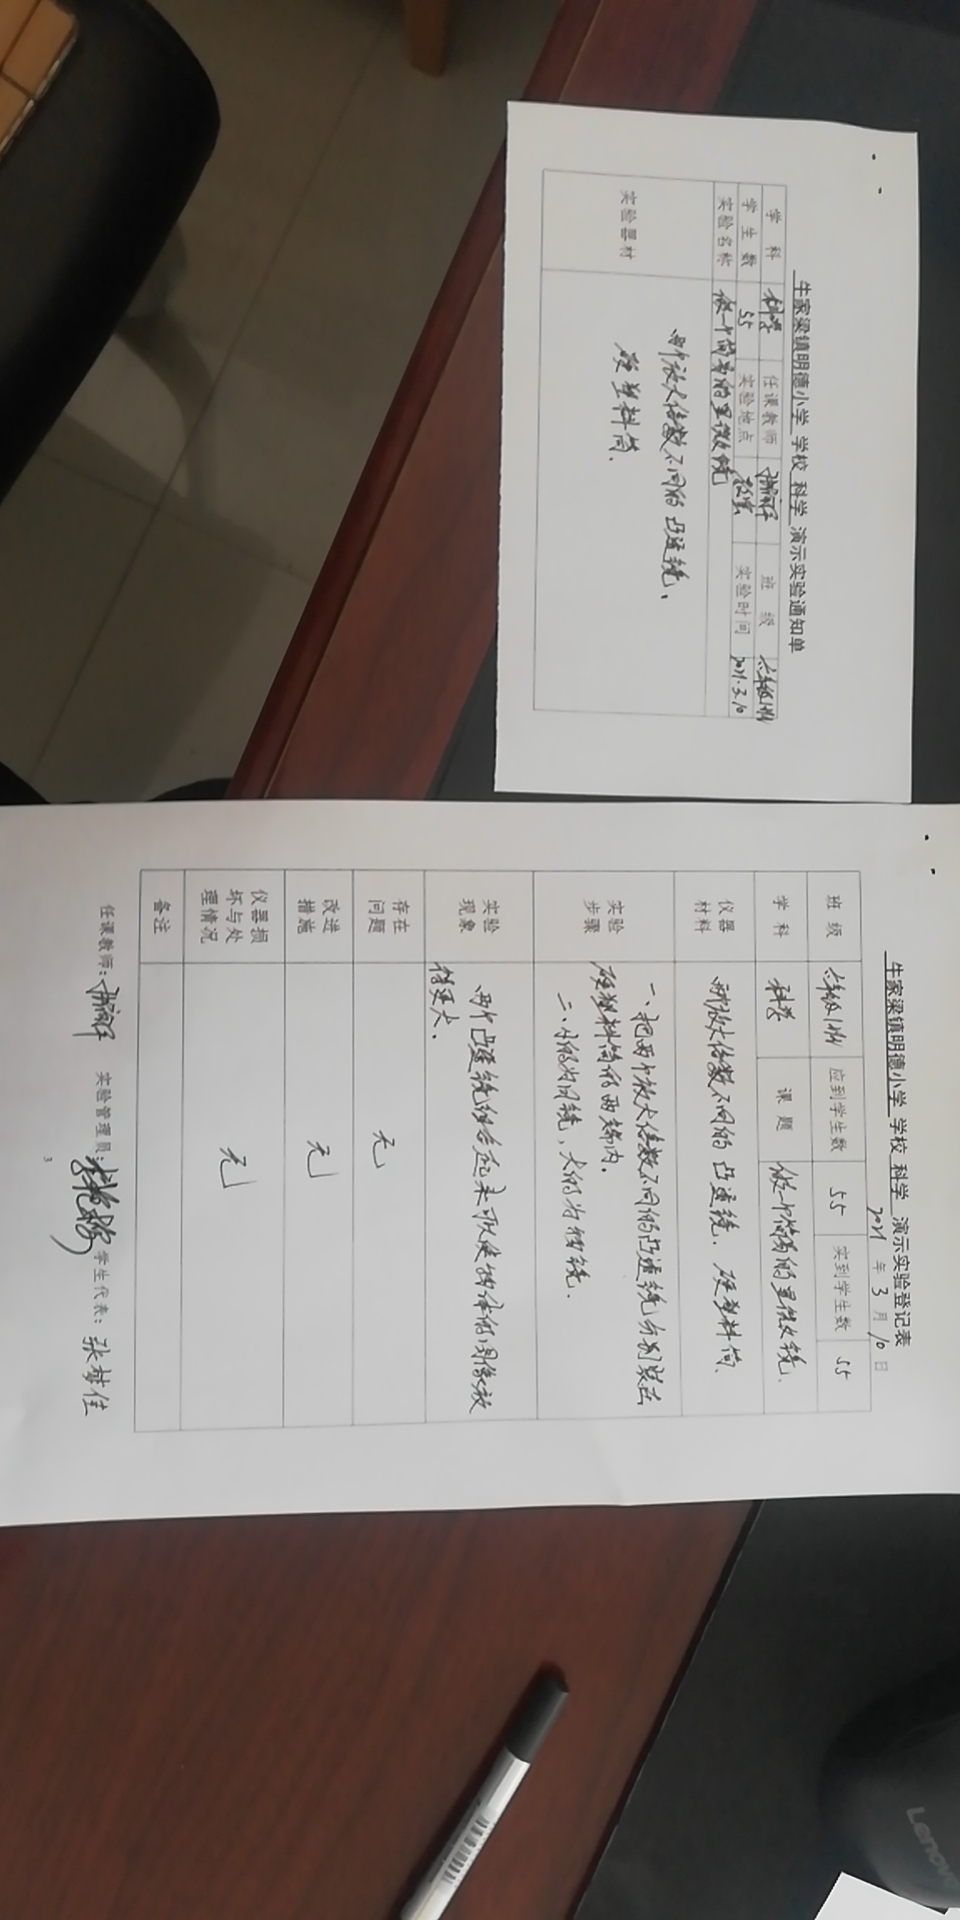 牛家梁镇明德小学 学校 科学 演示实验通知单
学科 科学 任课教师 班级 六年级1班
学生数 55 实验地点 教室 实验时间 2021.3.10
实验名称 做一个简易的显微镜
实验器材 两个放大倍数不同的凸透镜、
硬塑料筒.
牛家梁镇明德小学 学校 科学 演示实验登记表
2021年3月10日
班级 六年级1班 应到学生数 55 实到学生数 55
学科 科学 课题 做一个简易的显微镜.
仪器材料 两个放大倍数不同的凸透镜、硬塑料筒.
实验步骤 一、把两个放大倍数不同的凸透镜分别装在
硬塑料筒的两端内.
二、小的为目镜,大的为物镜.
实验现象 两个凸透镜组合起来可以使物体的图像放
得更大.
存在问题 无
改进措施 无
仪器损坏与处理情况 无
备注
任课教师: 实验管理员: 学生代表: 张梦佳
3
Lenovo